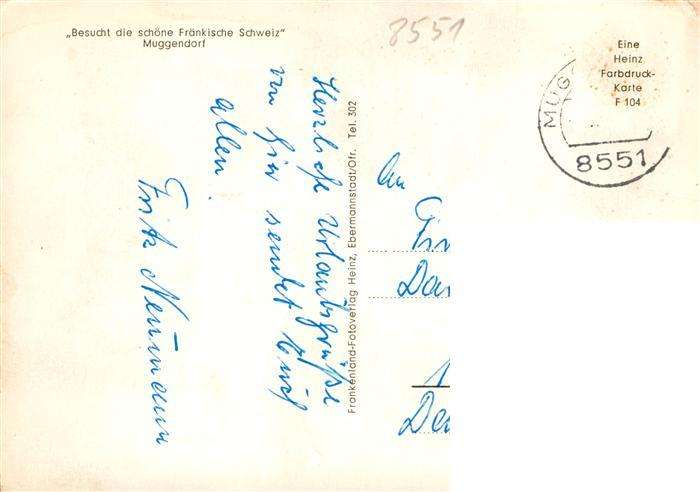 „Besucht die schöne Fränkische Schweiz"
Muggendorf
8551
Eine
Heinz
Farbdruck-
Karte
F 104
MUG
8551
Herzliche Urlaubsgrüße
von hier sendet Euch
allen.
Fritz Neumann
Frankenland-Fotoverlag Heinz, Ebermannstadt/Ofr. Tel. 302
An